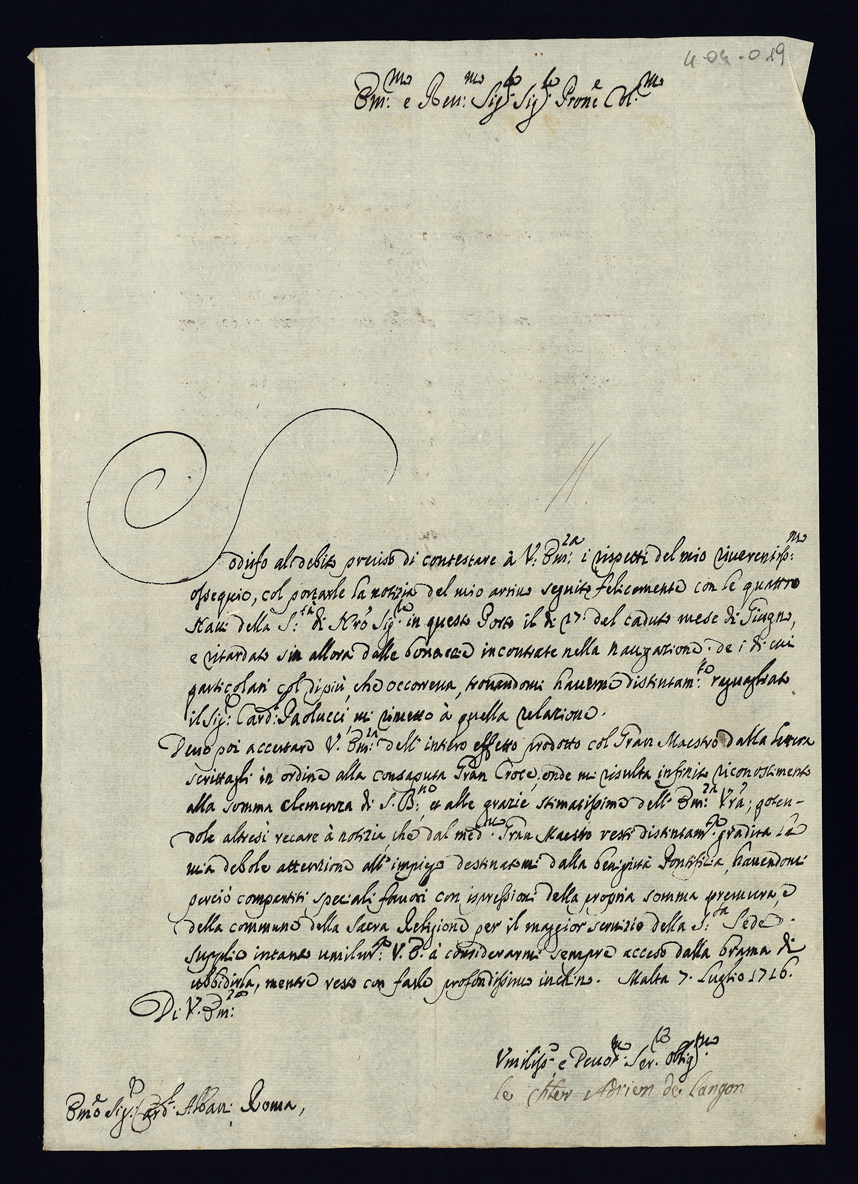 4-04-019
Em:mo e Reu:mo Sig:re Sig:re Prone Col:mo
Sodisfo al debito preciso di contestare à V: Em:za i rispetti del mio riuerentiss:mo
ossequio, col portarle la notizia del mio arriuo seguito felicemente con le quattro
Naui della S:tà di Nro Sig:re in questo Porto il di 27: del caduto mese di Giugno,
e ritardato sin allora dalle bonaccie incontrate nella nauigazione. de i di cui
particolari col di più, che occorreua, trouandomi hauerne distintam:te ragguagliato
il Sig:r Card: Paolucci, mi rimetto à quella relazione.
Deuo poi accertare V: Em:za dell' intero effetto prodotto col Gran Maestro dalla lettera
scrittagli in ordine alla consaputa Gran Croce, onde mi risulta infinito riconoscimento
alla somma clemenza di S. B:ne et alle grazie stimatissime dell' Em:za Vra; poten-
dole altresì recare à notizia, che dal med:mo Gran Maestro restò distintam:te gradita la
mia debole attenzione all' impiego destinatomi dalla benignità Pontificia, hauendomi
perciò compartiti speciali fauori con espressioni della propria somma premura, e
della commune della Sacra Religione per il maggior seruizio della S:ta Sede.
Supplico intanto umilm:te V. E: à considerarmi sempre acceso dalla brama di
ubbidirla, mentre resto con farle profondissimo inchino. Malta 7. Luglio 1716.
Di V. Em:za
Vmiliss:o e Deuot:mo Ser:re Oblig:mo
le Chler Adrien de Langon
Emo Sig:r Card:l Albani Roma,